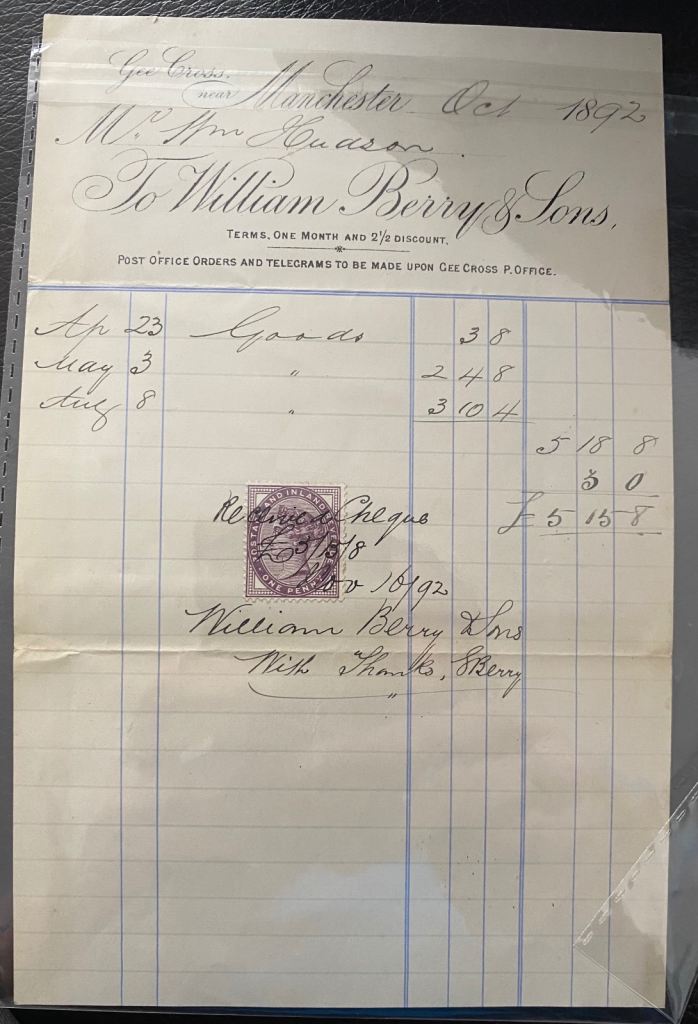 Gee Cross,
near Manchester Oct 1892
Mr. Wm Hudson.
To William Berry & Sons,
TERMS, ONE MONTH AND 2½ DISCOUNT.
POST OFFICE ORDERS AND TELEGRAMS TO BE MADE UPON GEE CROSS P. OFFICE.
Ap 23 Goods 3 8
May 3 " 2 4 8
Aug 8 " 3 10 4
5 18 8
3 0
£ 5 15 8
POSTAGE AND INLAND REVENUE
ONE PENNY
Received Cheque
£5/15/8
Nov 16/92
William Berry & Sons
With Thanks, SBerry
"